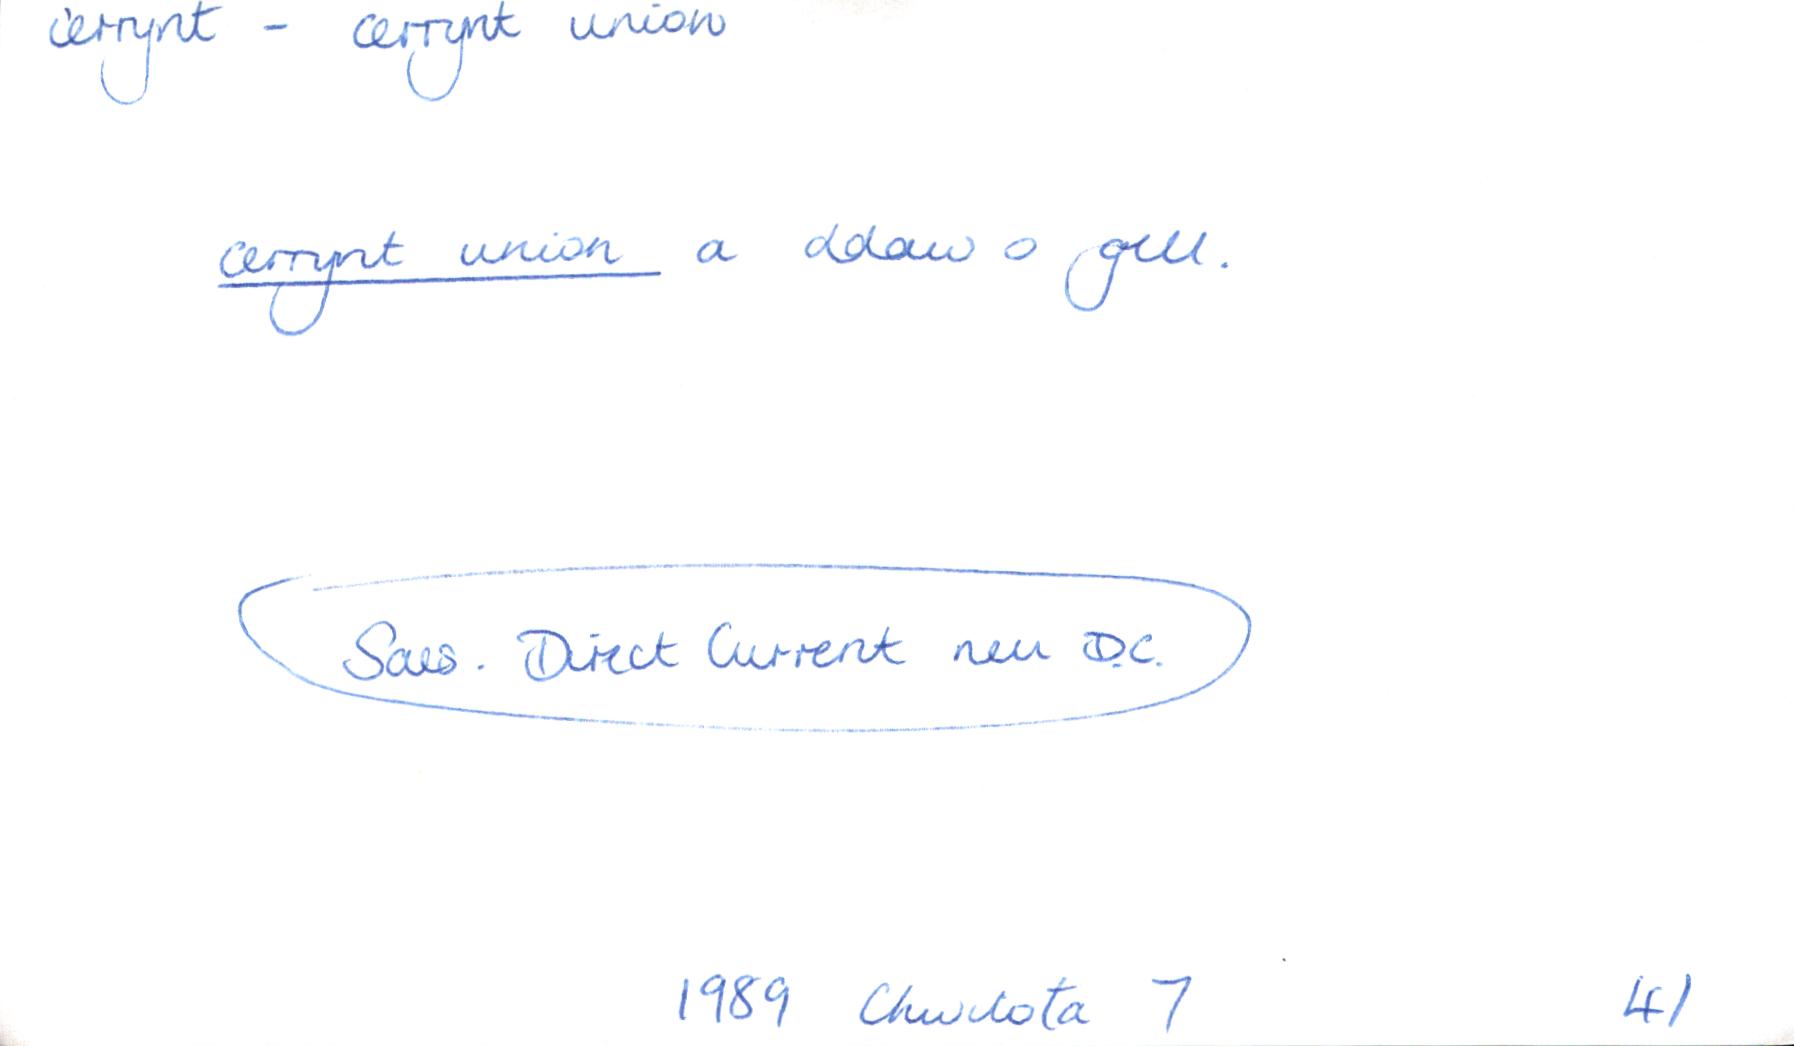 cerrynt - cerrynt union
cerrynt union a ddaw o gell.
Saes. Direct Current neu D.C.
1989 Chwilota 7 41